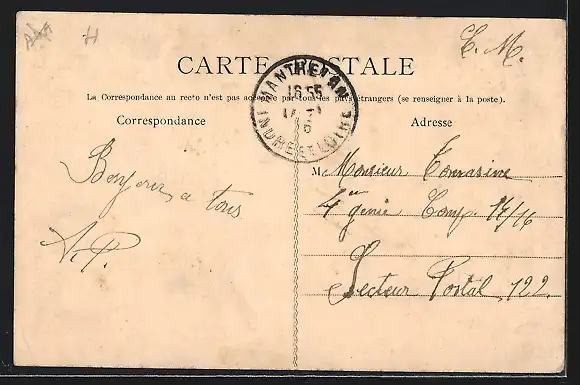 H
F. M.
CARTE POSTALE
La Correspondance au recto n'est pas acceptée par tous les pays étrangers (se renseigner à la poste).
Correspondance
Adresse
MANTHELAN
16 55
INDRE ET LOIRE
Bonjour a tous
M Monsieur Tourasine
4e genie Comp. 14/16
Secteur Postal 122